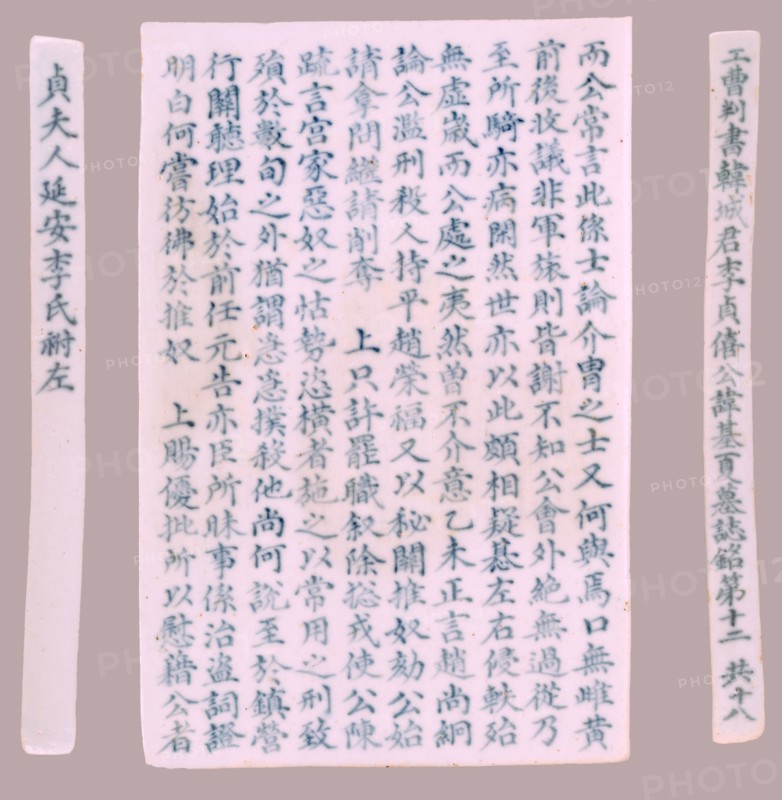 工曹判書韓城君李貞僖公諱基夏墓誌銘第十二 共十八
而公常言此係士論介胄之士又何與焉口無雌黃
前後收議非軍旅則皆謝不知公會外絶無過從乃
至所騎亦病閑然世亦以此頗相疑惎左右侵軼殆
無虛歲而公處之夷然曾不介意乙未正言趙尚絅
論公濫刑殺人持平趙榮福又以秘關推奴劾公始
請拿問繼請削奪 上只許罷職叙除摠戎使公陳
疏言宮家惡奴之怙勢恣橫者施之以常用之刑致
殞於數旬之外猶謂恚恚撲殺他尚何說至於鎮營
行關聽理始於前任元告亦臣所昧事係治盜詞證
明白何嘗彷彿於推奴 上賜優批所以慰藉公者
貞夫人延安李氏祔左